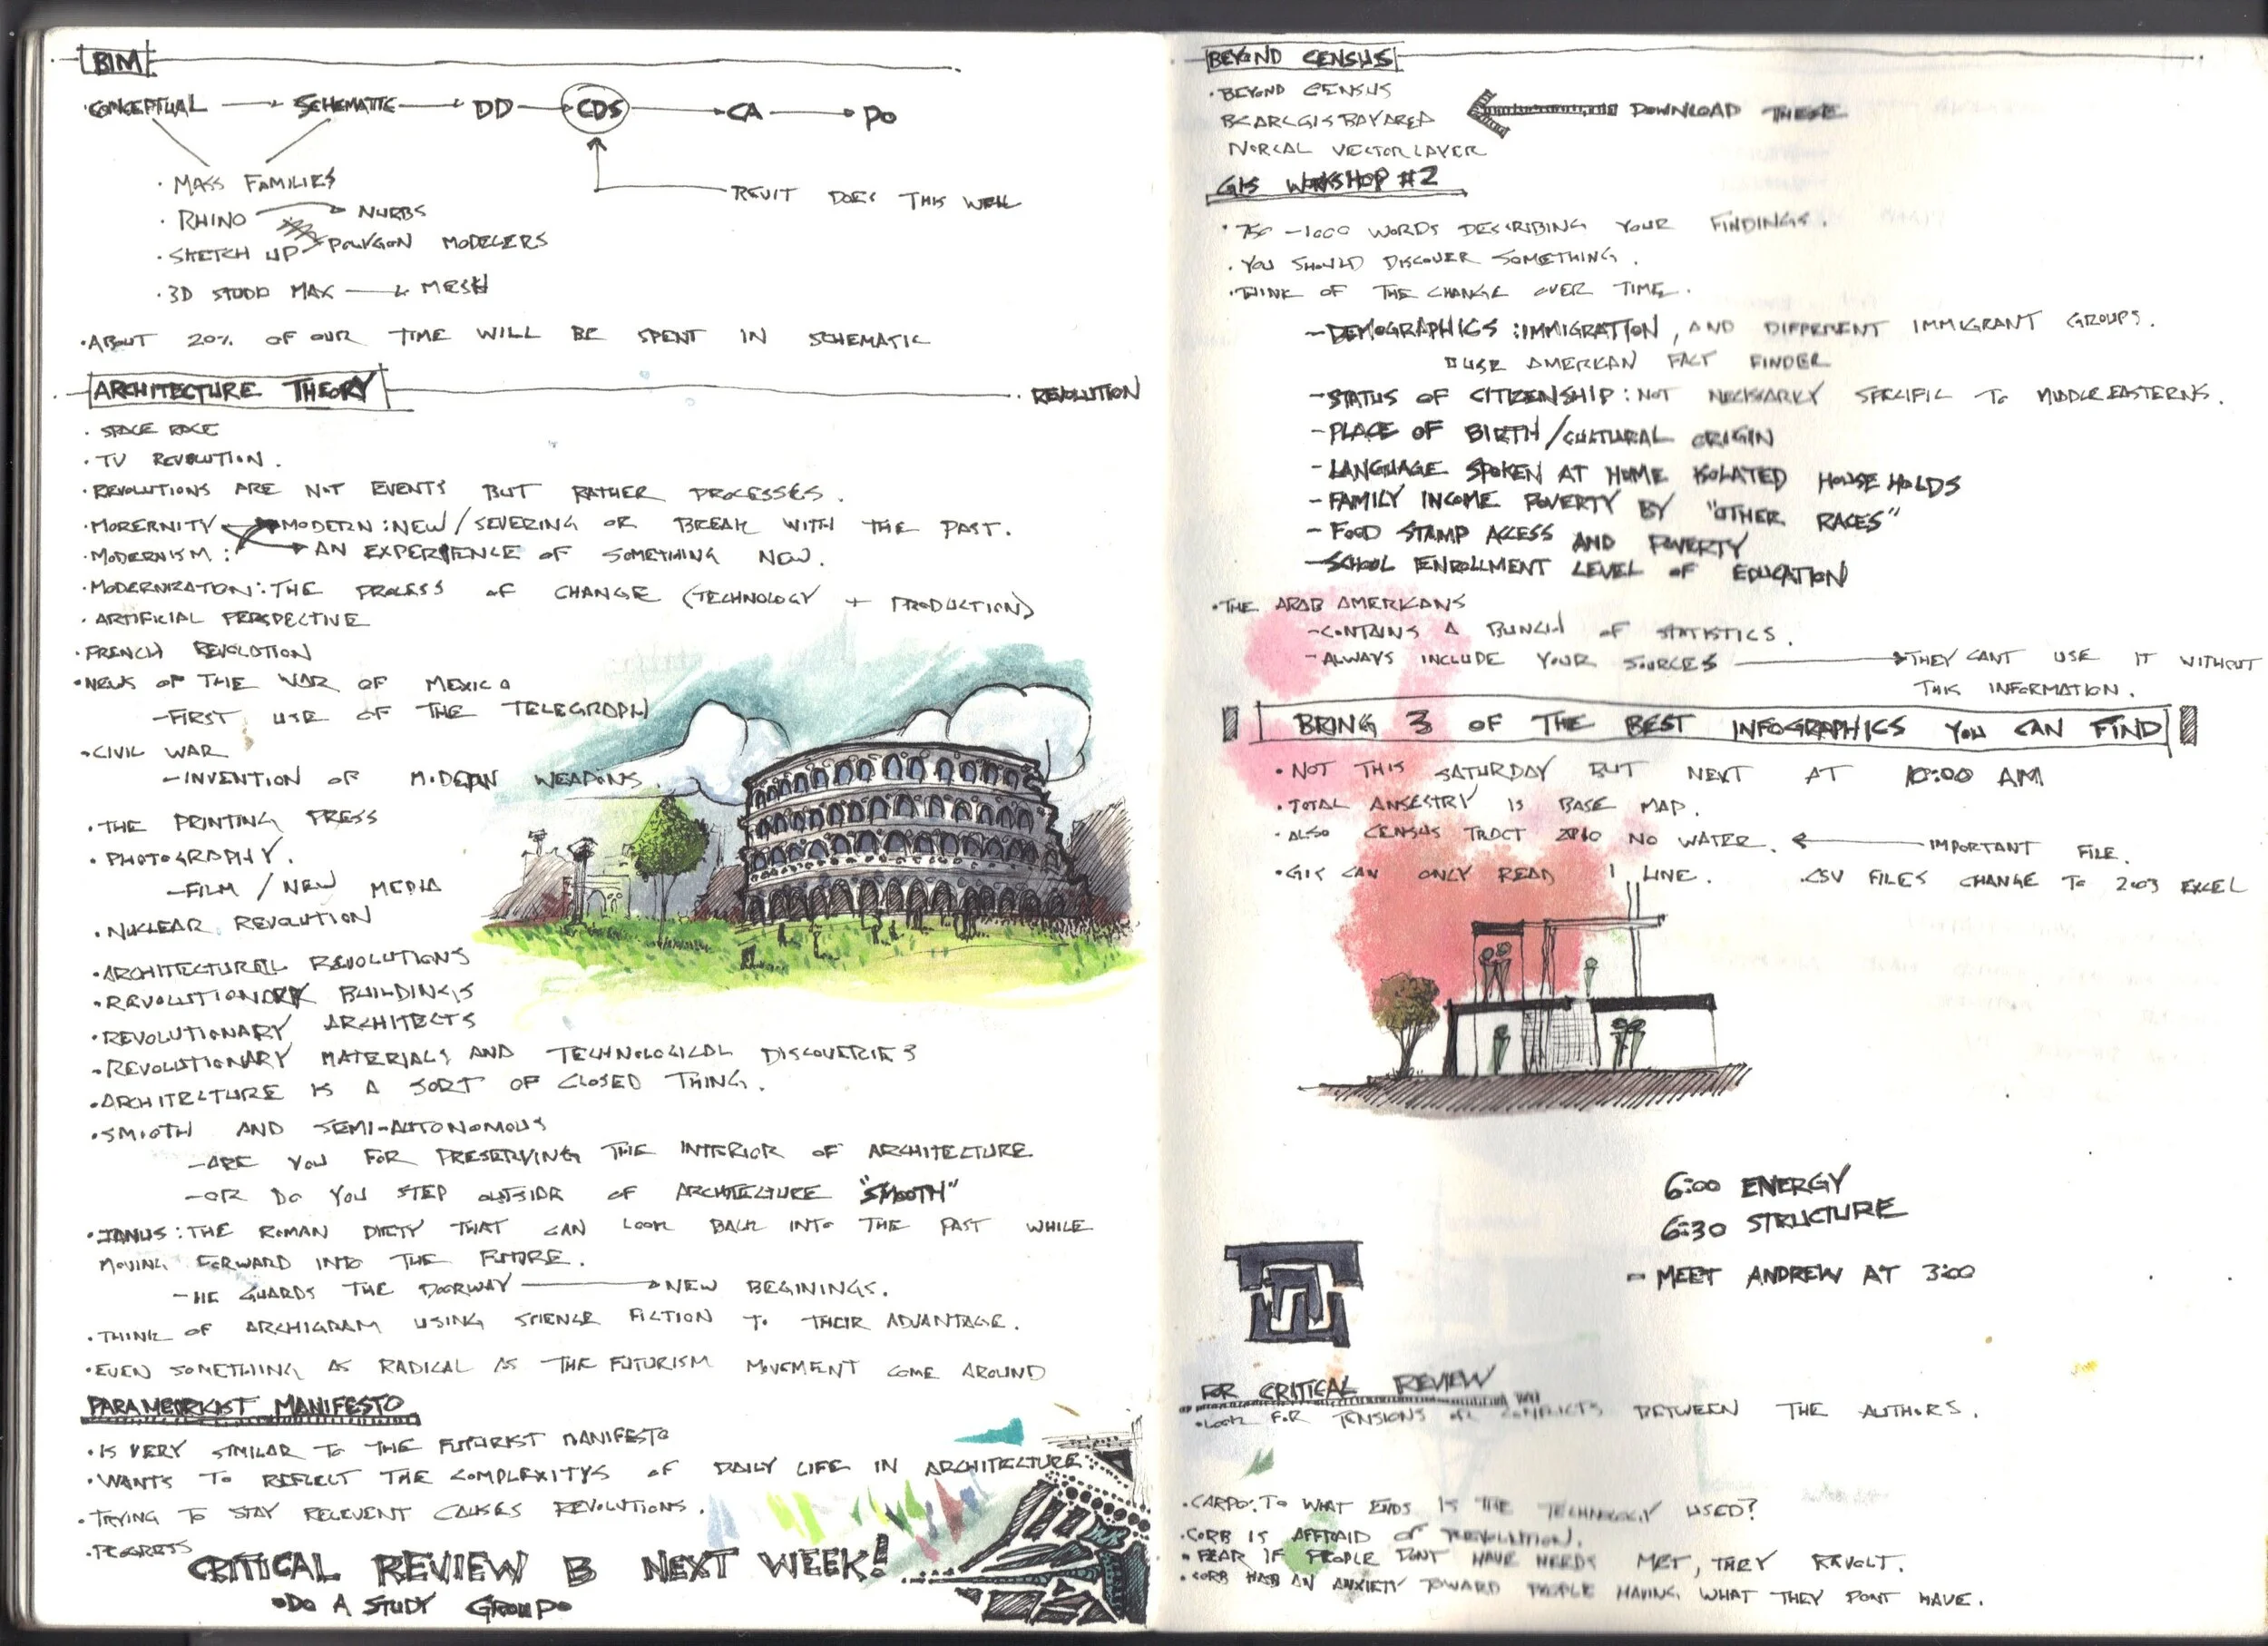 BIM
CONCEPTUAL → SCHEMATIC → DD → CDS → CA → PO
• MASS FAMILIES
REVIT DOES THIS WELL
• RHINO → NURBS
• SKETCH UP → POLYGON MODELERS
• 3D STUDIO MAX → MESH
• ABOUT 20% OF OUR TIME WILL BE SPENT IN SCHEMATIC
ARCHITECTURE THEORY
• REVOLUTION
• SPACE RACE
• TV REVOLUTION.
• REVOLUTIONS ARE NOT EVENTS BUT RATHER PROCESSES.
• MORERNITY MODERN: NEW / SEVERING OR BREAK WITH THE PAST.
• MODERNISM: AN EXPERIENCE OF SOMETHING NEW.
• MODERNIZATION: THE PROCESS OF CHANGE (TECHNOLOGY + PRODUCTION)
• ARTIFICIAL PERSPECTIVE
• FRENCH REVOLUTION
• NEWS OF THE WAR OF MEXICO
- FIRST USE OF THE TELEGRAPH
• CIVIL WAR
- INVENTION OF MODERN WEAPONS.
• THE PRINTING PRESS
• PHOTOGRAPHY.
- FILM / NEW MEDIA
• NUCLEAR REVOLUTION
• ARCHITECTURAL REVOLUTIONS
• REVOLUTIONARY BUILDINGS
• REVOLUTIONARY ARCHITECTS
• REVOLUTIONARY MATERIALS AND TECHNOLOGICAL DISCOVERIES
• ARCHITECTURE IS A SORT OF CLOSED THING.
• SMOOTH AND SEMI-AUTONOMOUS
- ARE YOU FOR PRESERVING THE INTERIOR OF ARCHITECTURE
- OR DO YOU STEP OUTSIDE OF ARCHITECTURE "SMOOTH"
• JANUS: THE ROMAN DIETY THAT CAN LOOK BACK INTO THE PAST WHILE
MOVING FORWARD INTO THE FUTURE.
- HE GUARDS THE DOORWAY → NEW BEGININGS.
• THINK OF ARCHIGRAM USING SCIENCE FICTION TO THEIR ADVANTAGE.
• EVEN SOMETHING AS RADICAL AS THE FUTURISM MOVEMENT COME AROUND
PARAMETRICIST MANIFESTO
• IS VERY SIMILAR TO THE FUTURIST MANIFESTO
• WANTS TO REFLECT THE COMPLEXITYS OF DAILY LIFE IN ARCHITECTURE.
• TRYING TO STAY RELEVENT CAUSES REVOLUTIONS.
• PROGRESS
CRITICAL REVIEW B NEXT WEEK!
• DO A STUDY GROUP •
BEYOND CENSUS
• BEYOND CENSUS
BCARCGISBAYAREA ← DOWNLOAD THESE
NORCAL VECTOR LAYER
GIS WORKSHOP #2
• 750 - 1000 WORDS DESCRIBING YOUR FINDINGS.
• YOU SHOULD DISCOVER SOMETHING.
• THINK OF THE CHANGE OVER TIME.
- DEMOGRAPHICS: IMMIGRATION, AND DIFFERENT IMMIGRANT GROUPS.
USE AMERICAN FACT FINDER
- STATUS OF CITIZENSHIP: NOT NECISSARLY SPECIFIC TO MIDDLE EASTERNS.
- PLACE OF BIRTH / CULTURAL ORIGIN
- LANGUAGE SPOKEN AT HOME ISOLATED HOUSE HOLDS
- FAMILY INCOME POVERTY BY "OTHER RACES"
- FOOD STAMP ACCESS AND POVERTY
- SCHOOL ENROLLMENT LEVEL OF EDUCATION
• THE ARAB AMERICANS
- CONTAINS A BUNCH OF STATISTICS.
- ALWAYS INCLUDE YOUR SOURCES → THEY CANT USE IT WITHOUT
THIS INFORMATION.
BRING 3 OF THE BEST INFOGRAPHICS YOU CAN FIND
• NOT THIS SATURDAY BUT NEXT AT 10:00 AM
• TOTAL ANSESTRY IS BASE MAP.
• ALSO CENSUS TRACT 2010 NO WATER. ← IMPORTANT FILE.
• GIS CAN ONLY READ 1 LINE. .CSV FILES CHANGE TO 2003 EXCEL
6:00 ENERGY
6:30 STRUCTURE
- MEET ANDREW AT 3:00
FOR CRITICAL REVIEW
• LOOK FOR TENSIONS OR CONFLICTS BETWEEN THE AUTHORS.
• CARPO: TO WHAT ENDS IS THE TECHNOLOGY USED?
• CORB IS AFFRAID OF REVOLUTION.
• FEAR IF PEOPLE DONT HAVE NEEDS MET, THEY REVOLT.
• CORB HAS AN ANXIETY TOWARD PEOPLE HAVING WHAT THEY DONT HAVE.